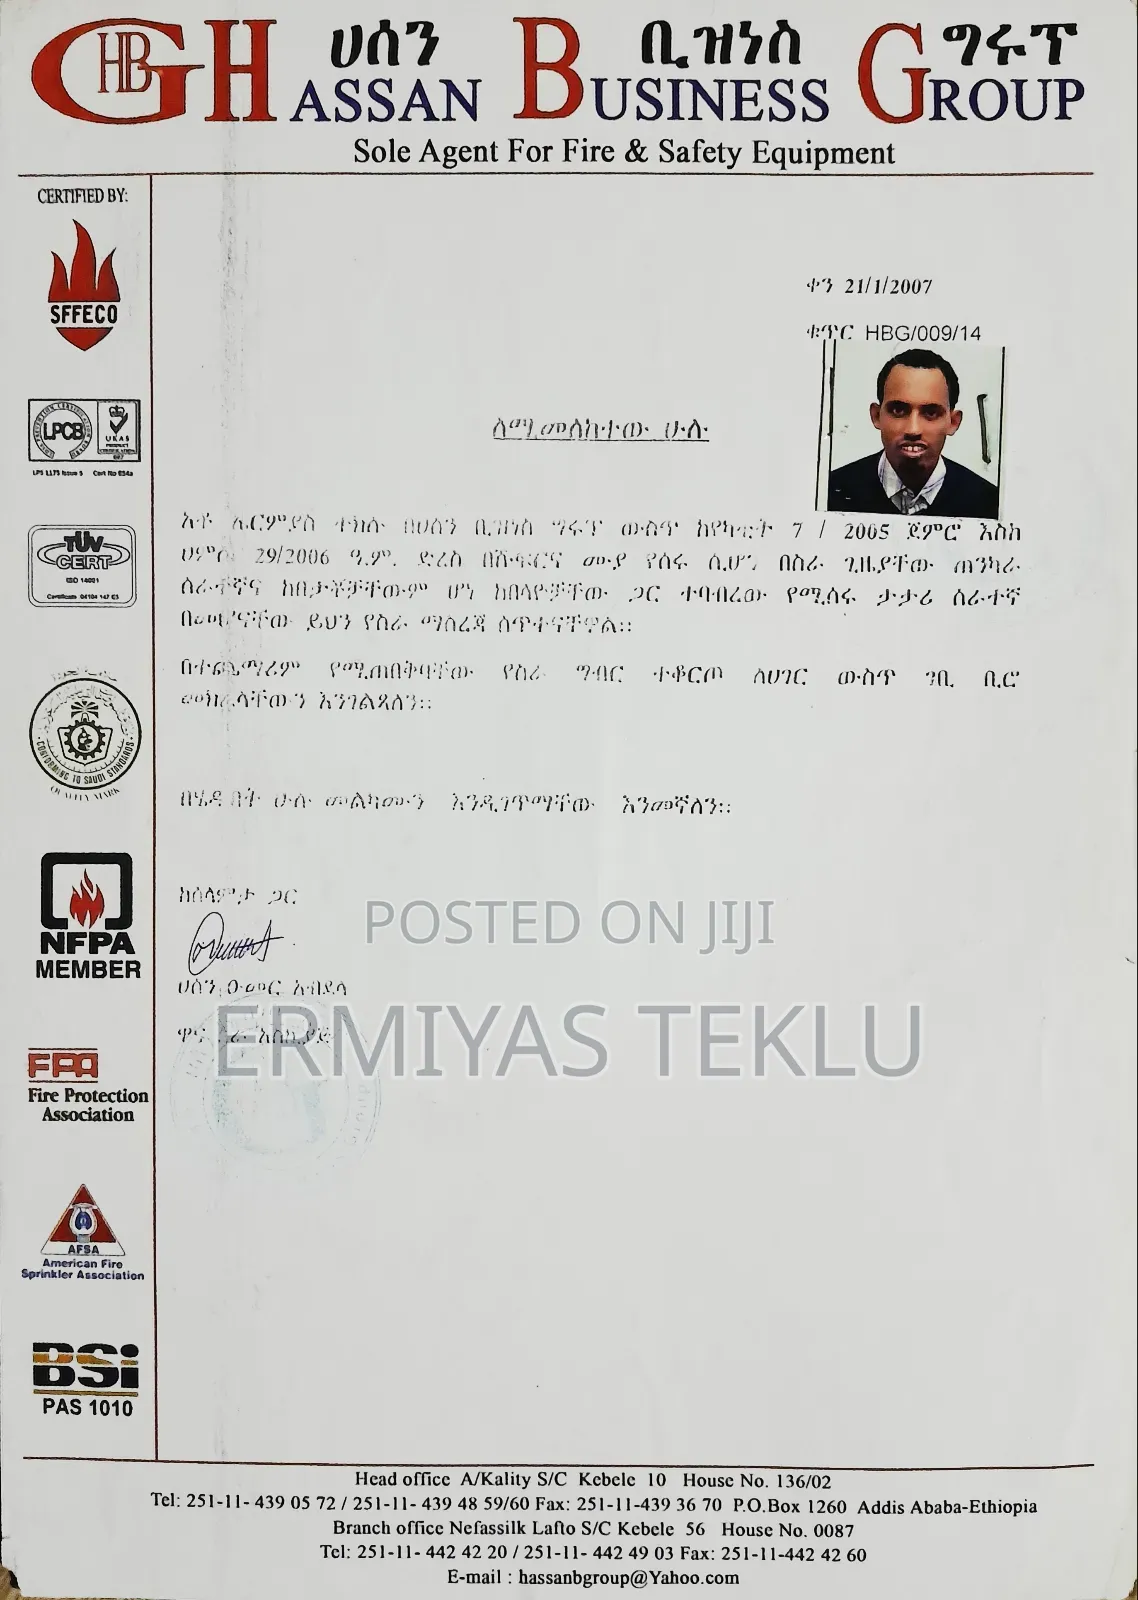 HBG
ሀሰን ቢዝነስ ግሩፕ
HASSAN BUSINESS GROUP
Sole Agent For Fire & Safety Equipment
CERTIFIED BY:
SFFECO
LPCB
UKAS
LPS 1175 Issue 5 Cert No 654a
TÜV
CERT
ISO 14001
CONFORMING TO SAUDI STANDARDS
QUALITY MARK
NFPA
MEMBER
FPA
Fire Protection
Association
AFSA
American Fire
Sprinkler Association
BSi
PAS 1010
ቀን 21/1/2007
ቁጥር HBG/009/14
ለሚመለከተው ሁሉ
አቶ ኤርምያስ ተክሉ በሀሰን ቢዝነስ ግሩፕ ውስጥ ከየካቲት 7 / 2005 ጀምሮ እስከ
ሀምሌ 29/2006 ዓ.ም. ድረስ በሹፍርና ሙያ የሰሩ ሲሆን በስራ ጊዜያቸው ጠንካራ
ሰራተኛና ከበታቾቻቸውም ሆነ ከበላዮቻቸው ጋር ተባብረው የሚሰሩ ታታሪ ሰራተኛ
በመሆናቸው ይህን የስራ ማስረጃ ሰጥተናቸዋል።
በተጨማሪም የሚጠበቅባቸው የስራ ግብር ተቆርጦ ለሀገር ውስጥ ገቢ ቢሮ
መክፈላቸውን እንገልጻለን።
በሄዱበት ሁሉ መልካሙን እንዲገጥማቸው እንመኛለን።
ከሰላምታ ጋር
ሀሰን ዑመር አብደላ
ዋና ስራ አስኪያጅ
POSTED ON JIJI
ERMIYAS TEKLU
Head office A/Kality S/C Kebele 10 House No. 136/02
Tel: 251-11- 439 05 72 / 251-11- 439 48 59/60 Fax: 251-11-439 36 70 P.O.Box 1260 Addis Ababa-Ethiopia
Branch office Nefassilk Lafto S/C Kebele 56 House No. 0087
Tel: 251-11- 442 42 20 / 251-11- 442 49 03 Fax: 251-11-442 42 60
E-mail : hassanbgroup@Yahoo.com